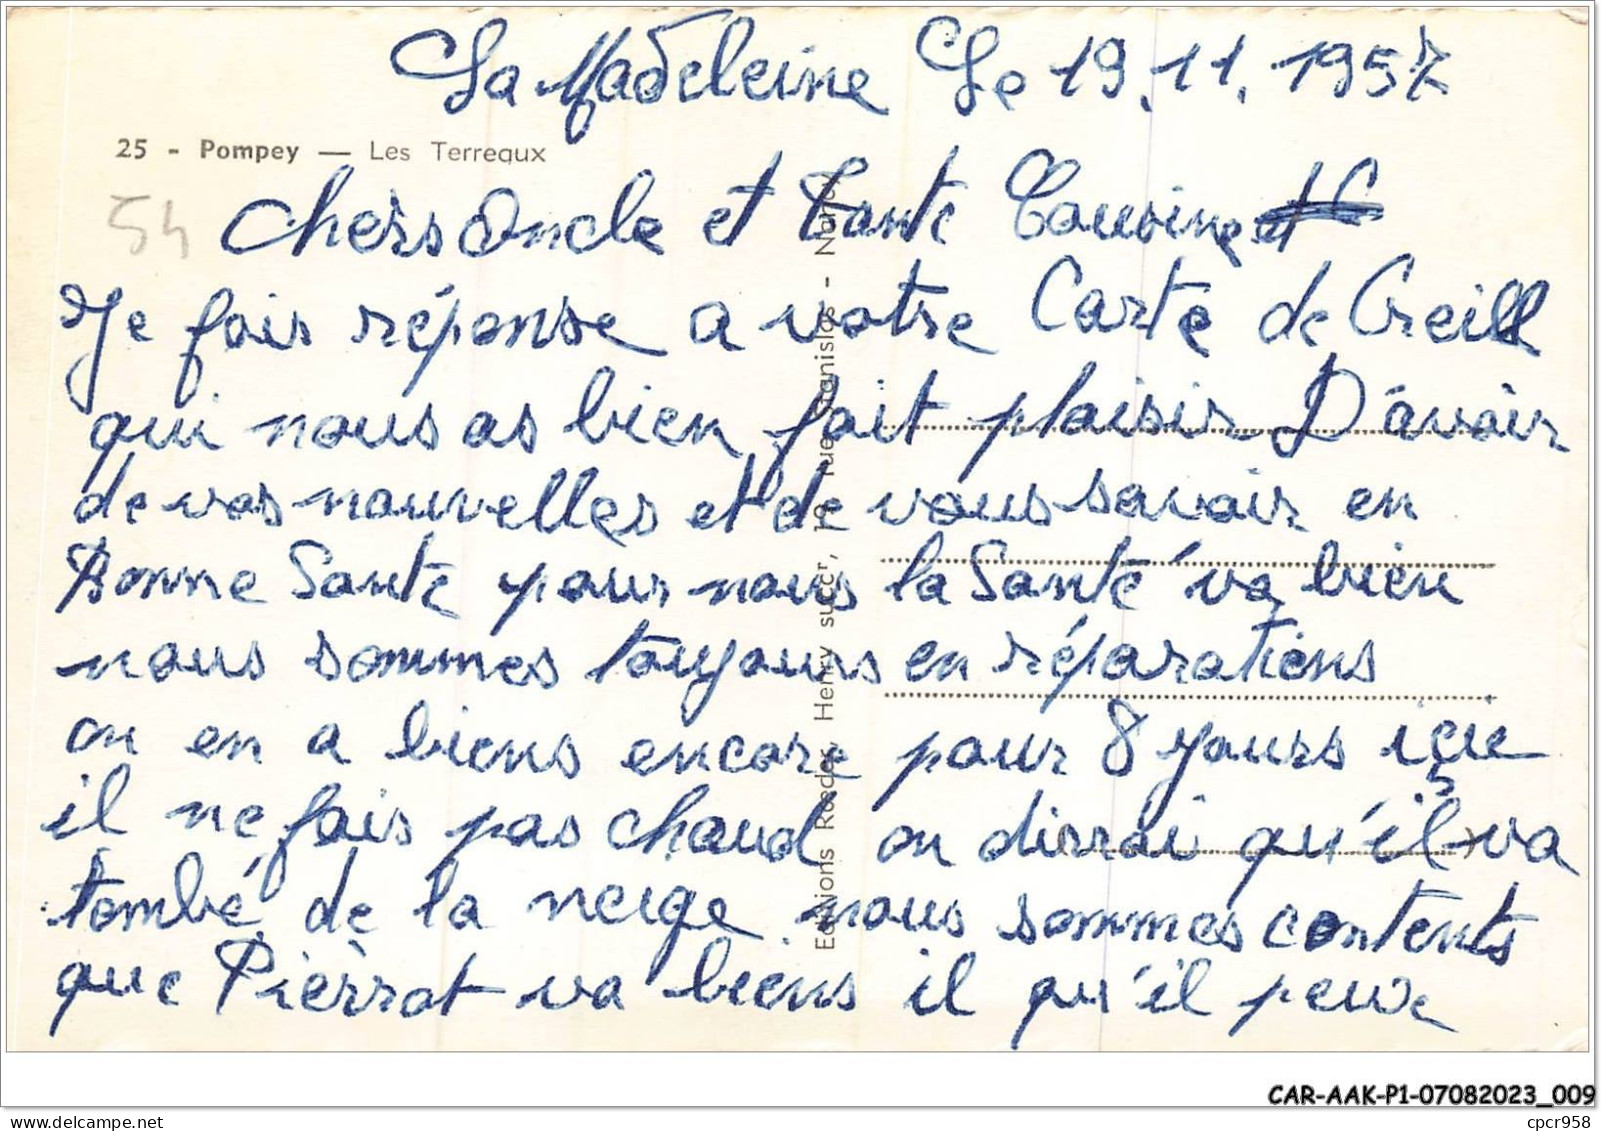 La Madeleine Le 19.11.1957
25 - Pompey — Les Terreaux
54
Chers Oncle et Tante Cousine
Je fais réponse a votre Carte de Creill
qui nous as bien fait plaisir D'avoir
de vos nouvelles et de vous savoir en
Bonne Santé pour nous la Santé va bien
nous sommes toujours en réparations
on en a biens encore pour 8 yours içie
il ne fais pas chaud on dirrai qu'il va
tombé de la neige nous sommes contents
que Pièrrot va biens il qu'il peux
Editions Roeder, Henry succr, 19 rue Stanislas - Nancy
CAR-AAK-P1-07082023_009
cpcr958